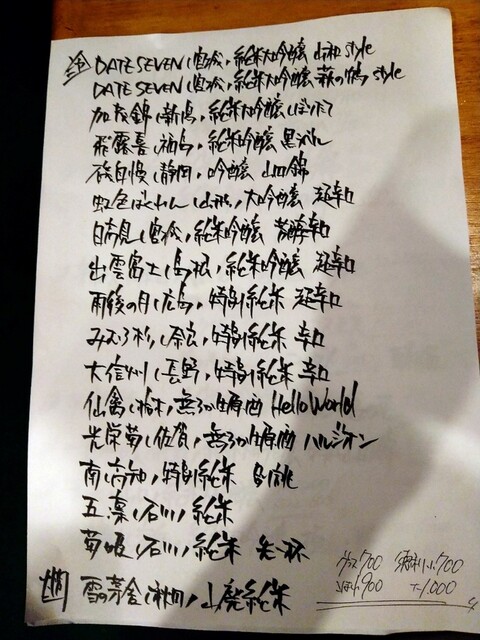 冷 DATE SEVEN (宮城) 純米大吟醸 山和 style
DATE SEVEN (宮城) 純米大吟醸 萩の鶴 style
加茂錦 (新潟) 純米大吟醸 しぼりたて
飛露喜 (福島) 純米吟醸 黒ラベル
磯自慢 (静岡) 吟醸 山田錦
虹色ばくれん (山形) 大吟醸 超辛口
日高見 (宮城) 純米吟醸 芳醇辛口
出雲富士 (島根) 純米吟醸 超辛口
雨後の月 (広島) 特別純米 超辛口
みむろ杉 (奈良) 特別純米 辛口
大信州 (長野) 特別純米 辛口
仙禽 (栃木) 無ろか生原酒 Hello World
光栄菊 (佐賀) 無ろか生原酒 ハルジオン
南 (高知) 特別純米
五凛 (石川) 純米
菊姫 (石川) 純米 先一杯
燗 雪の茅舎 (秋田) 山廃純米
グラス700 徳利小700
900 1,000